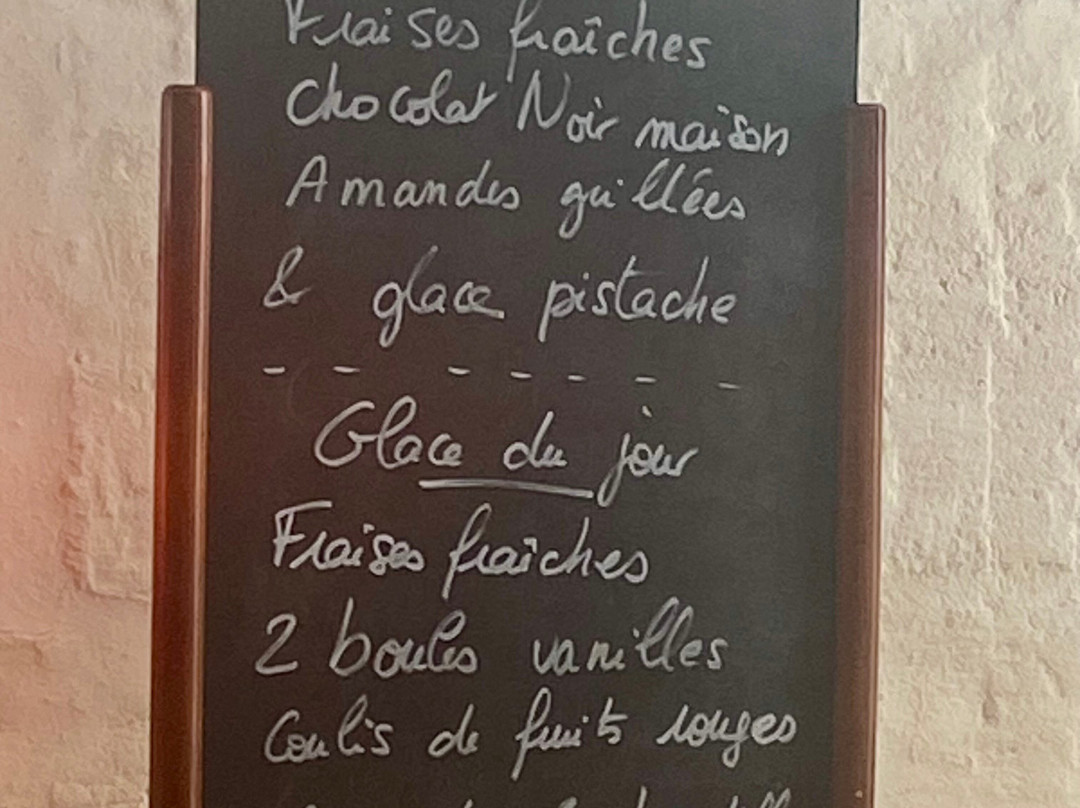 Fraises fraîches
Chocolat Noir maison
Amandes grillées
& glace pistache
- - - - - - -
Glace du jour
Fraises fraîches
2 boules vanilles
Coulis de fruits rouges